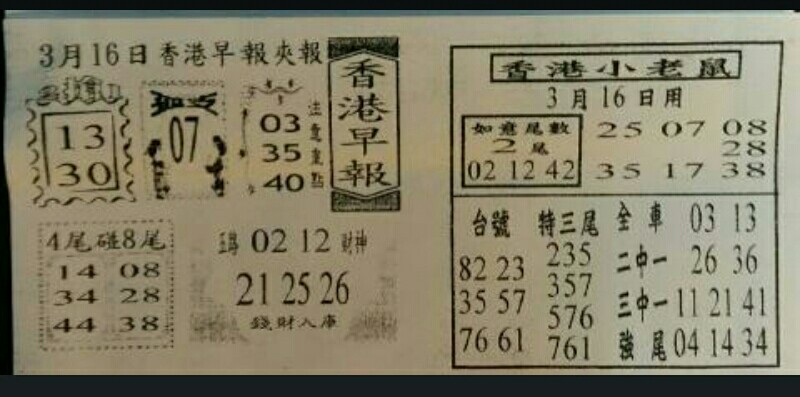 3月16日香港早報夾報
香港早報
13
30
孤支
07
注意重點
03
35
40
4尾碰8尾
14 08
34 28
44 38
02 12 財神
21 25 26
錢財入庫
香港小老鼠
3月16日用
如意尾數
2尾
02 12 42
25 07 08
28
35 17 38
台號
82 23
35 57
76 61
特三尾
235
357
576
761
全車 03 13
二中一 26 36
三中一 11 21 41
強尾 04 14 34